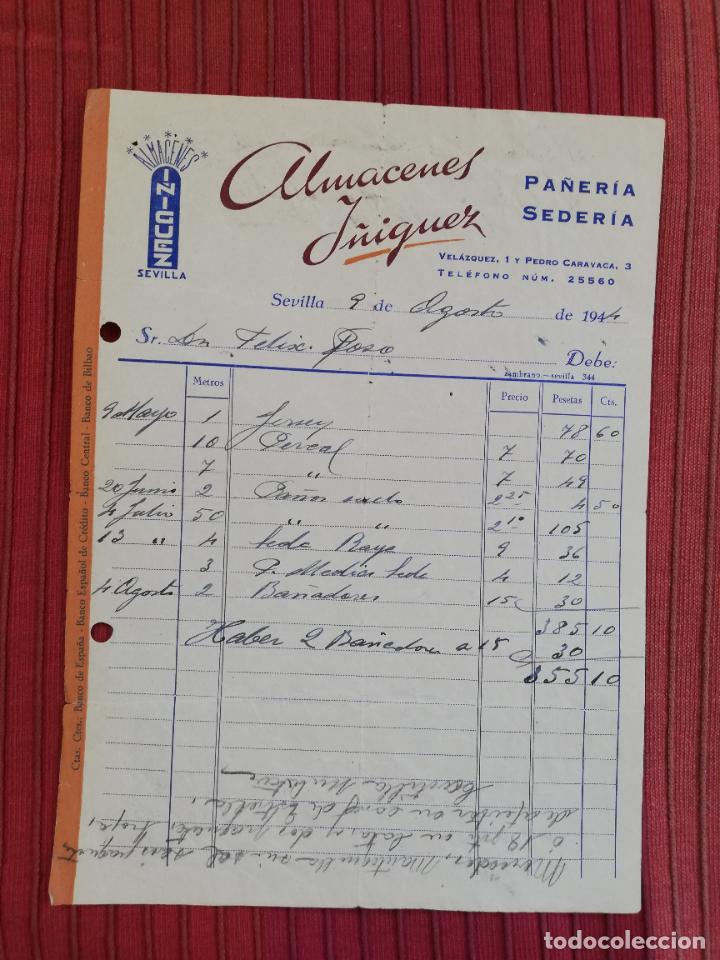 ALMACENES
IÑIGUEZ
SEVILLA
Almacenes
Iñiguez
PAÑERÍA
SEDERÍA
VELÁZQUEZ, 1 Y PEDRO CARAVACA, 3
TELÉFONO NÚM. 25560
Sevilla 9 de Agosto de 1944
Sr. Dn Felix Pozo
Debe:
Zambrano.—Sevilla 344
Metros Precio Pesetas Cts.
9 Mayo 1 Jersey 78 60
10 Percal 7 70
7 " 7 49
20 Junio 2 Paños 2 25 4 50
4 Julio 50 " " 2 10 105
13 " 4 Seda Raya 9 36
3 P. Medias Seda 4 12
4 Agosto 2 Bañadores 15 30
385 10
Haber 2 Bañadores a 15 30
355 10
Ctas. Ctes.: Banco de España - Banco Español de Crédito - Banco Central - Banco de Bilbao
Mantequilla sin sal
en lata, dos
de afeitar
todocoleccion
todocoleccion.net